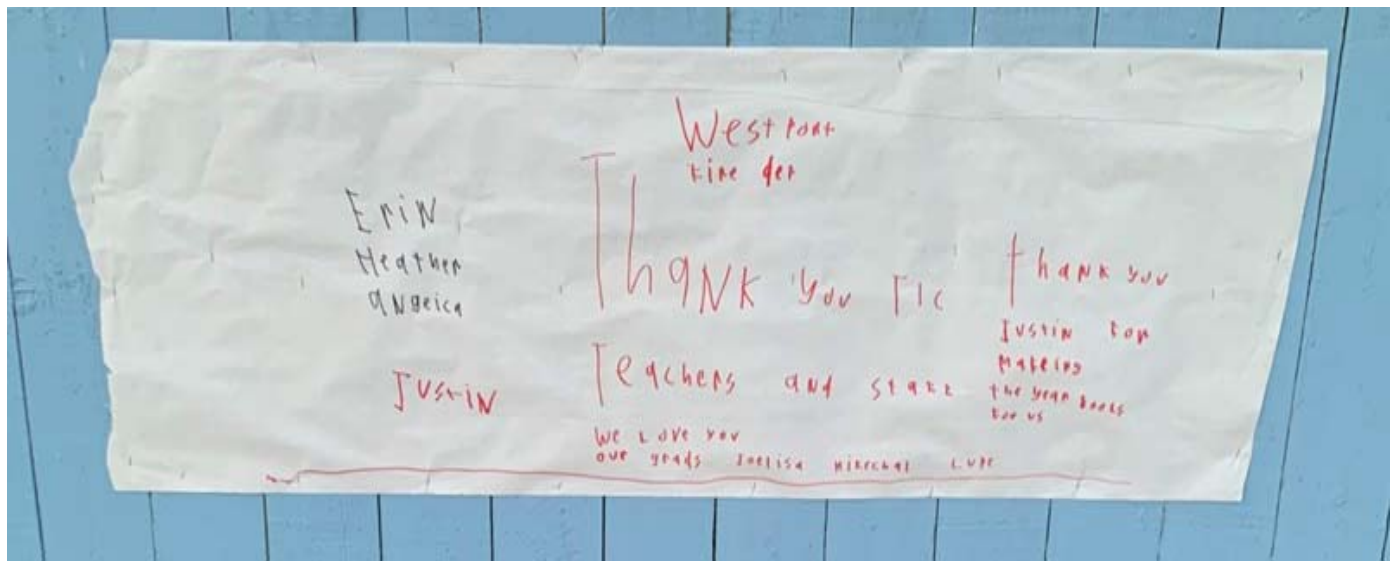 West Port
Fire der
Erin
Heather
angeica
Justin
Thank you TIC
Teachers and staff
We Love you
our grads Joelisa
thank you
Justin For
Makeing
the year books
For us